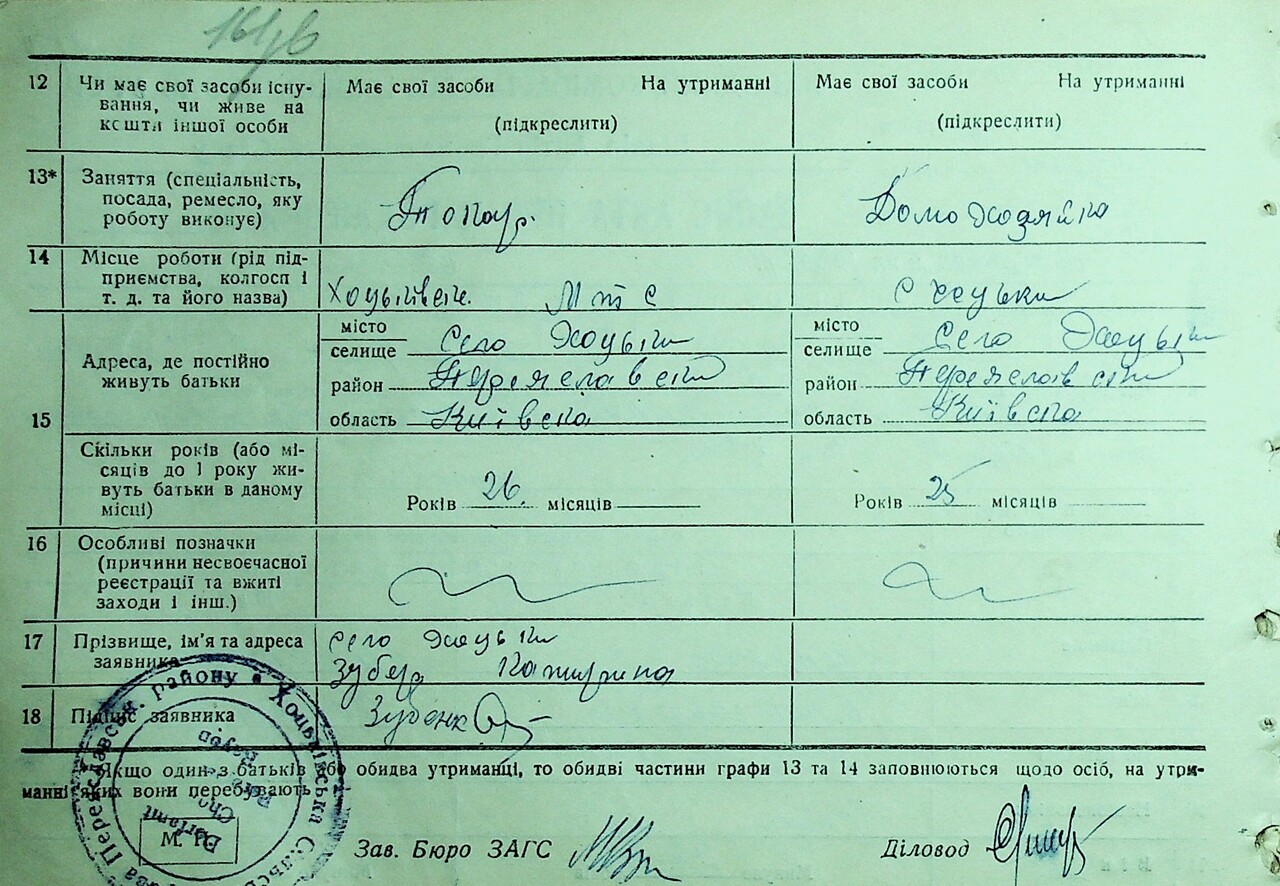 12 Чи має свої засоби існу-
вання, чи живе на
кошти іншої особи
Має свої засоби На утриманні
(підкреслити)
Має свої засоби На утриманні
(підкреслити)
13* Заняття (спеціальність,
посада, ремесло, яку
роботу виконує)
Токар.
Домохозяйка
14 Місце роботи (рід під-
приємства, колгосп і
т. д. та його назва)
МТС
с Хоцьки
15 Адреса, де постійно
живуть батьки
місто
селище Село Хоцьки
район Переяславський
область Київська
місто
селище Село Хоцьки
район Переяславський
область Київська
Скільки років (або мі-
сяців до 1 року жи-
вуть батьки в даному
місці)
Років 26. місяців
Років 25 місяців
16 Особливі позначки
(причини несвоєчасної
реєстрації та вжиті
заходи і інш.)
17 Прізвище, ім'я та адреса
заявника
село Хоцьки
18 Підпис заявника
Зубенко
* Якщо один з батьків або обидва утриманці, то обидві частини графи 13 та 14 заповнюються щодо осіб, на утри-
манні яких вони перебувають
М. П.
Зав. Бюро ЗАГС
Діловод